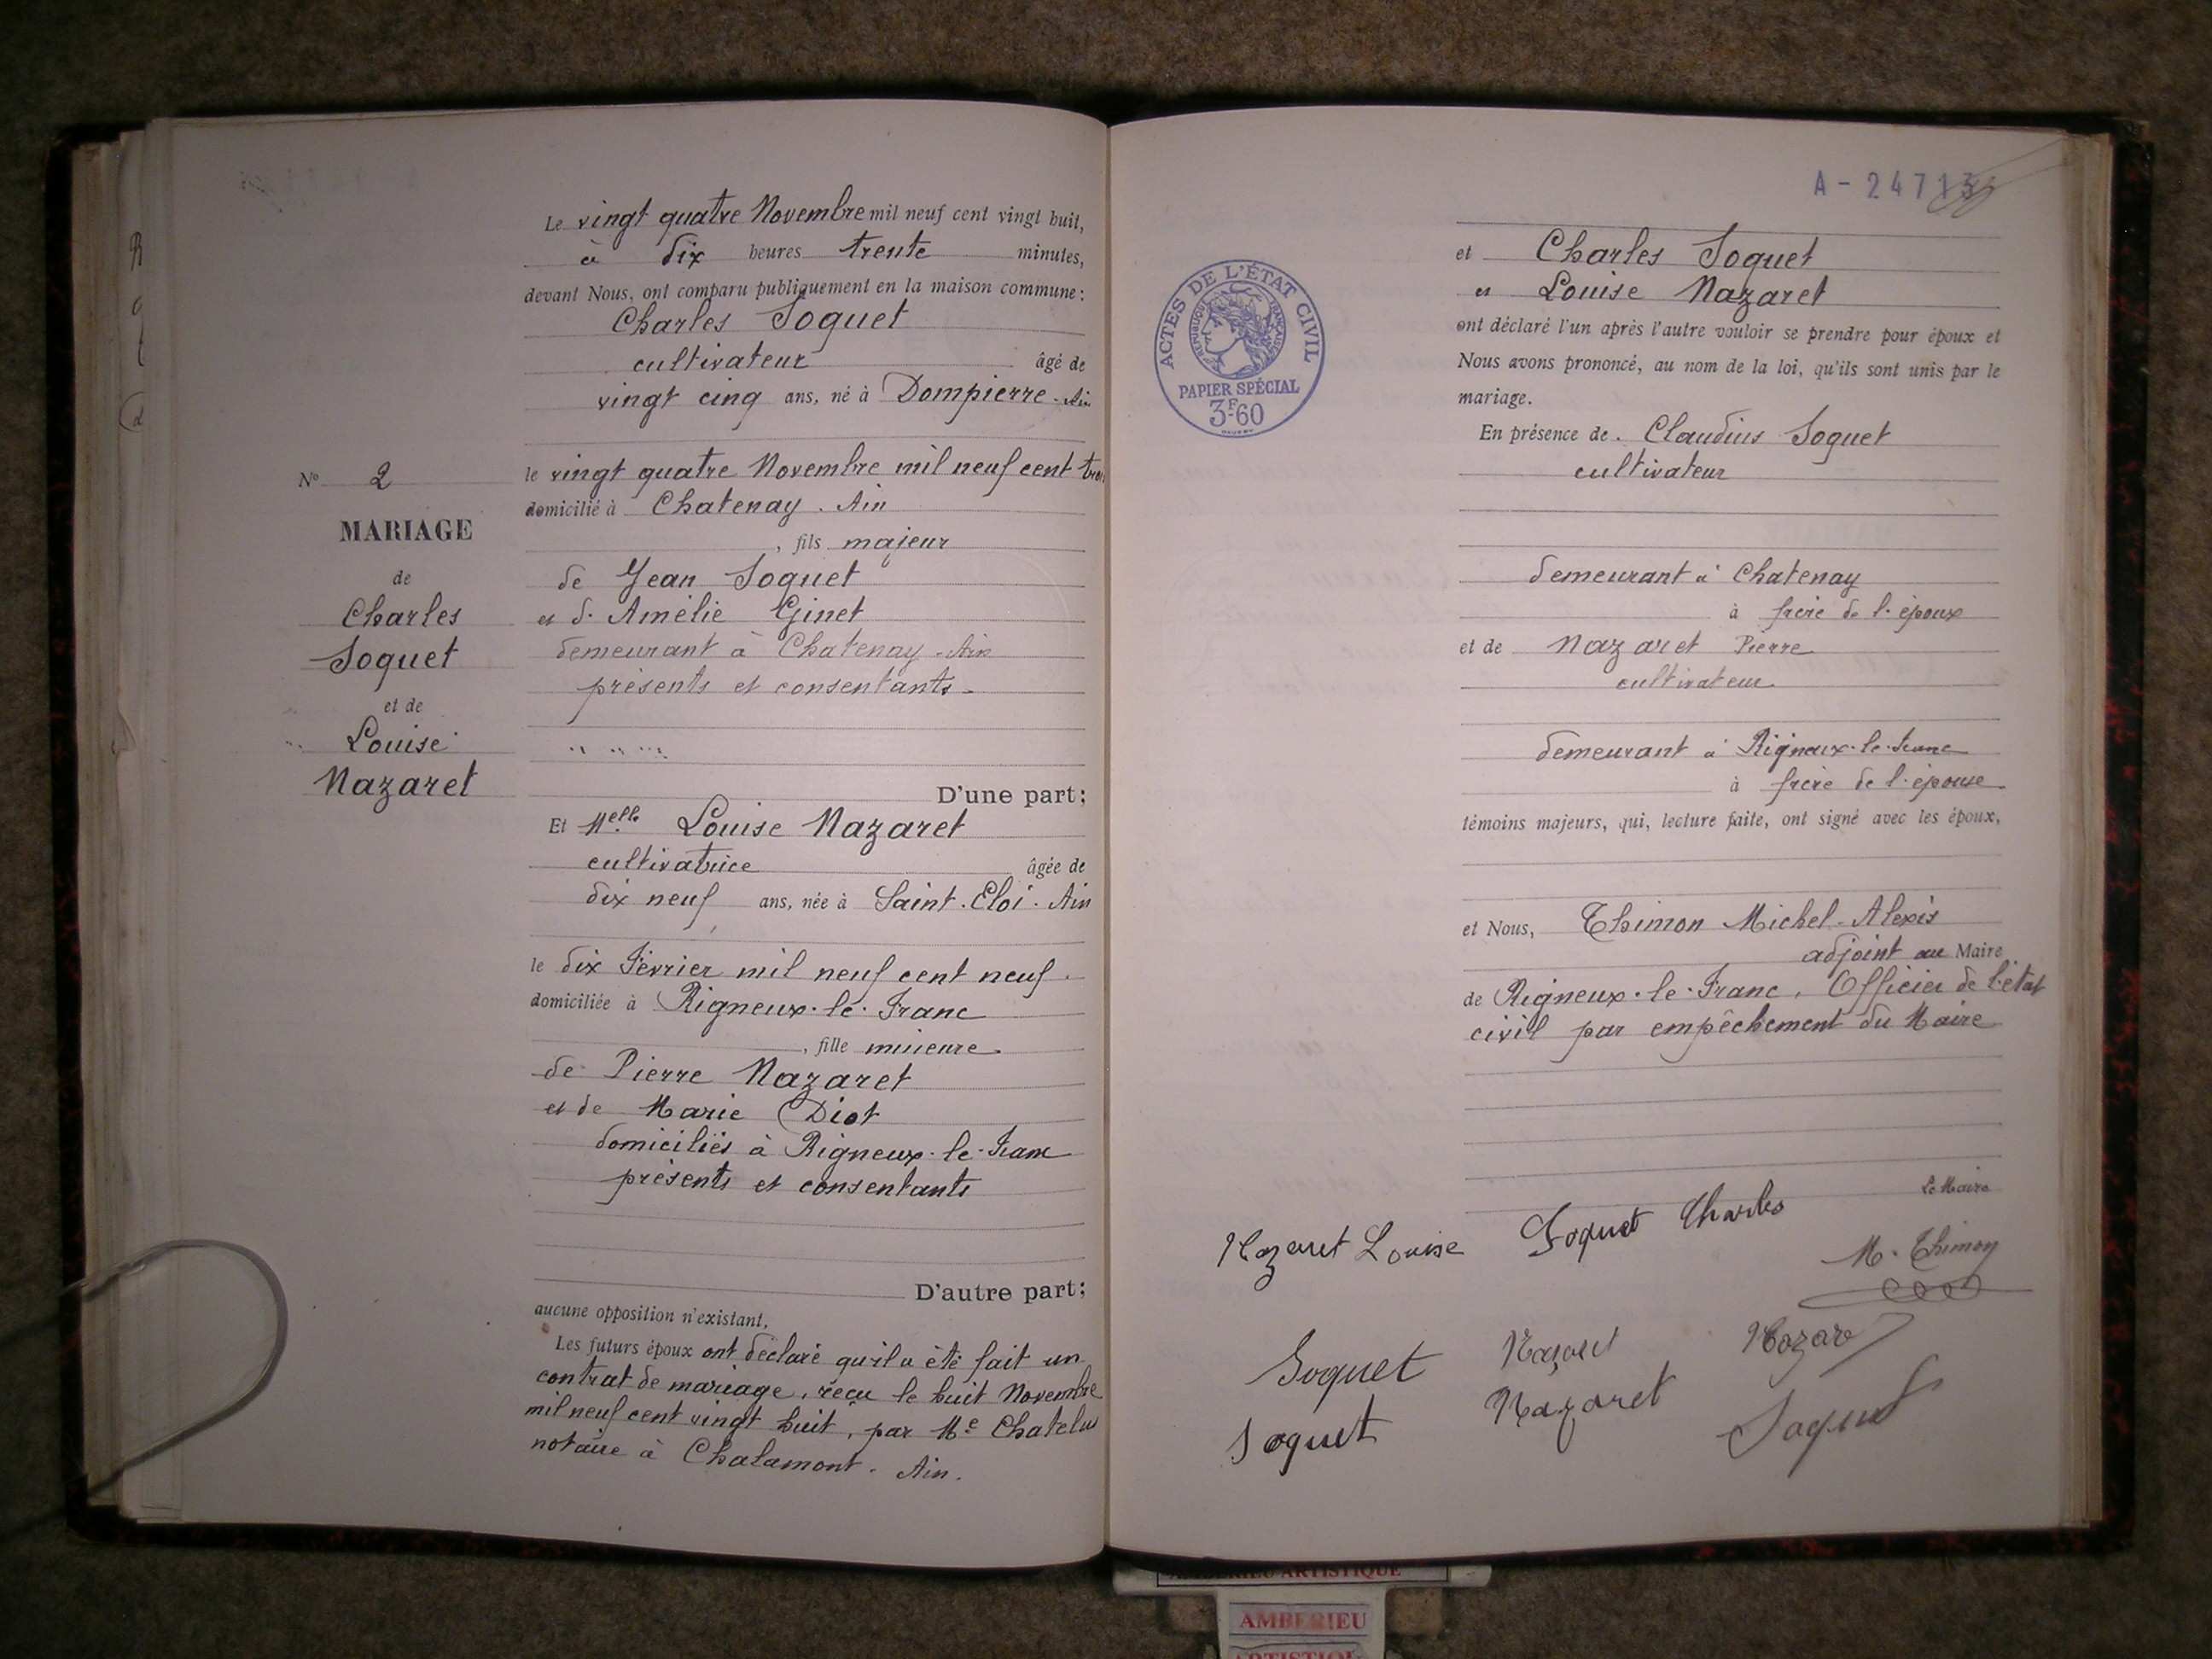 Le vingt quatre Novembre mil neuf cent vingt huit,
à dix heures trente minutes,
devant Nous, ont comparu publiquement en la maison commune:
Charles Soquet
cultivateur âgé de
vingt cinq ans, né à Dompierre - Ain
le vingt quatre Novembre mil neuf cent trois
domicilié à Chatenay . Ain
, fils majeur
de Jean Soquet
et d. Amélie Ginet
demeurant à Chatenay - Ain
présents et consentants -
D'une part;
Et Melle Louise Nazaret
cultivatrice âgée de
dix neuf ans, née à Saint . Eloi . Ain
le dix Février mil neuf cent neuf .
domiciliée à Rigneux . le . Franc
, fille mineure
de Pierre Nazaret
et de Marie Diot
domiciliés à Rigneux . le . Franc
présents et consentants
D'autre part;
aucune opposition n'existant,
Les futurs époux ont déclaré qu'il a été fait un
contrat de mariage, reçu le huit Novembre
mil neuf cent vingt huit, par Me Chatelus
notaire à Chalamont . Ain .
No 2
MARIAGE
de
Charles
Soquet
et de
Louise
Nazaret
A - 24713
ACTES DE L'ÉTAT CIVIL
RÉPUBLIQUE FRANÇAISE
PAPIER SPÉCIAL
3F60
et Charles Soquet
et Louise Nazaret
ont déclaré l'un après l'autre vouloir se prendre pour époux et
Nous avons prononcé, au nom de la loi, qu'ils sont unis par le
mariage.
En présence de . Claudius Soquet
cultivateur
demeurant à Chatenay
à frère de l'époux
et de Nazaret Pierre
cultivateur
demeurant à Rigneux . le . Franc
à frère de l'épouse
témoins majeurs, qui, lecture faite, ont signé avec les époux,
et Nous, Thimon Michel - Alexis
adjoint au Maire
de Rigneux . le . Franc , Officier de l'état
civil par empêchement du Maire
Le Maire
Nazaret Louise Soquet Charles
M. Thimon
Soquet Nazaret Nazare
Soquet Nazaret Soquet
AMBERIEU ARTISTIQUE
AMBERIEU
ARTISTIQUE